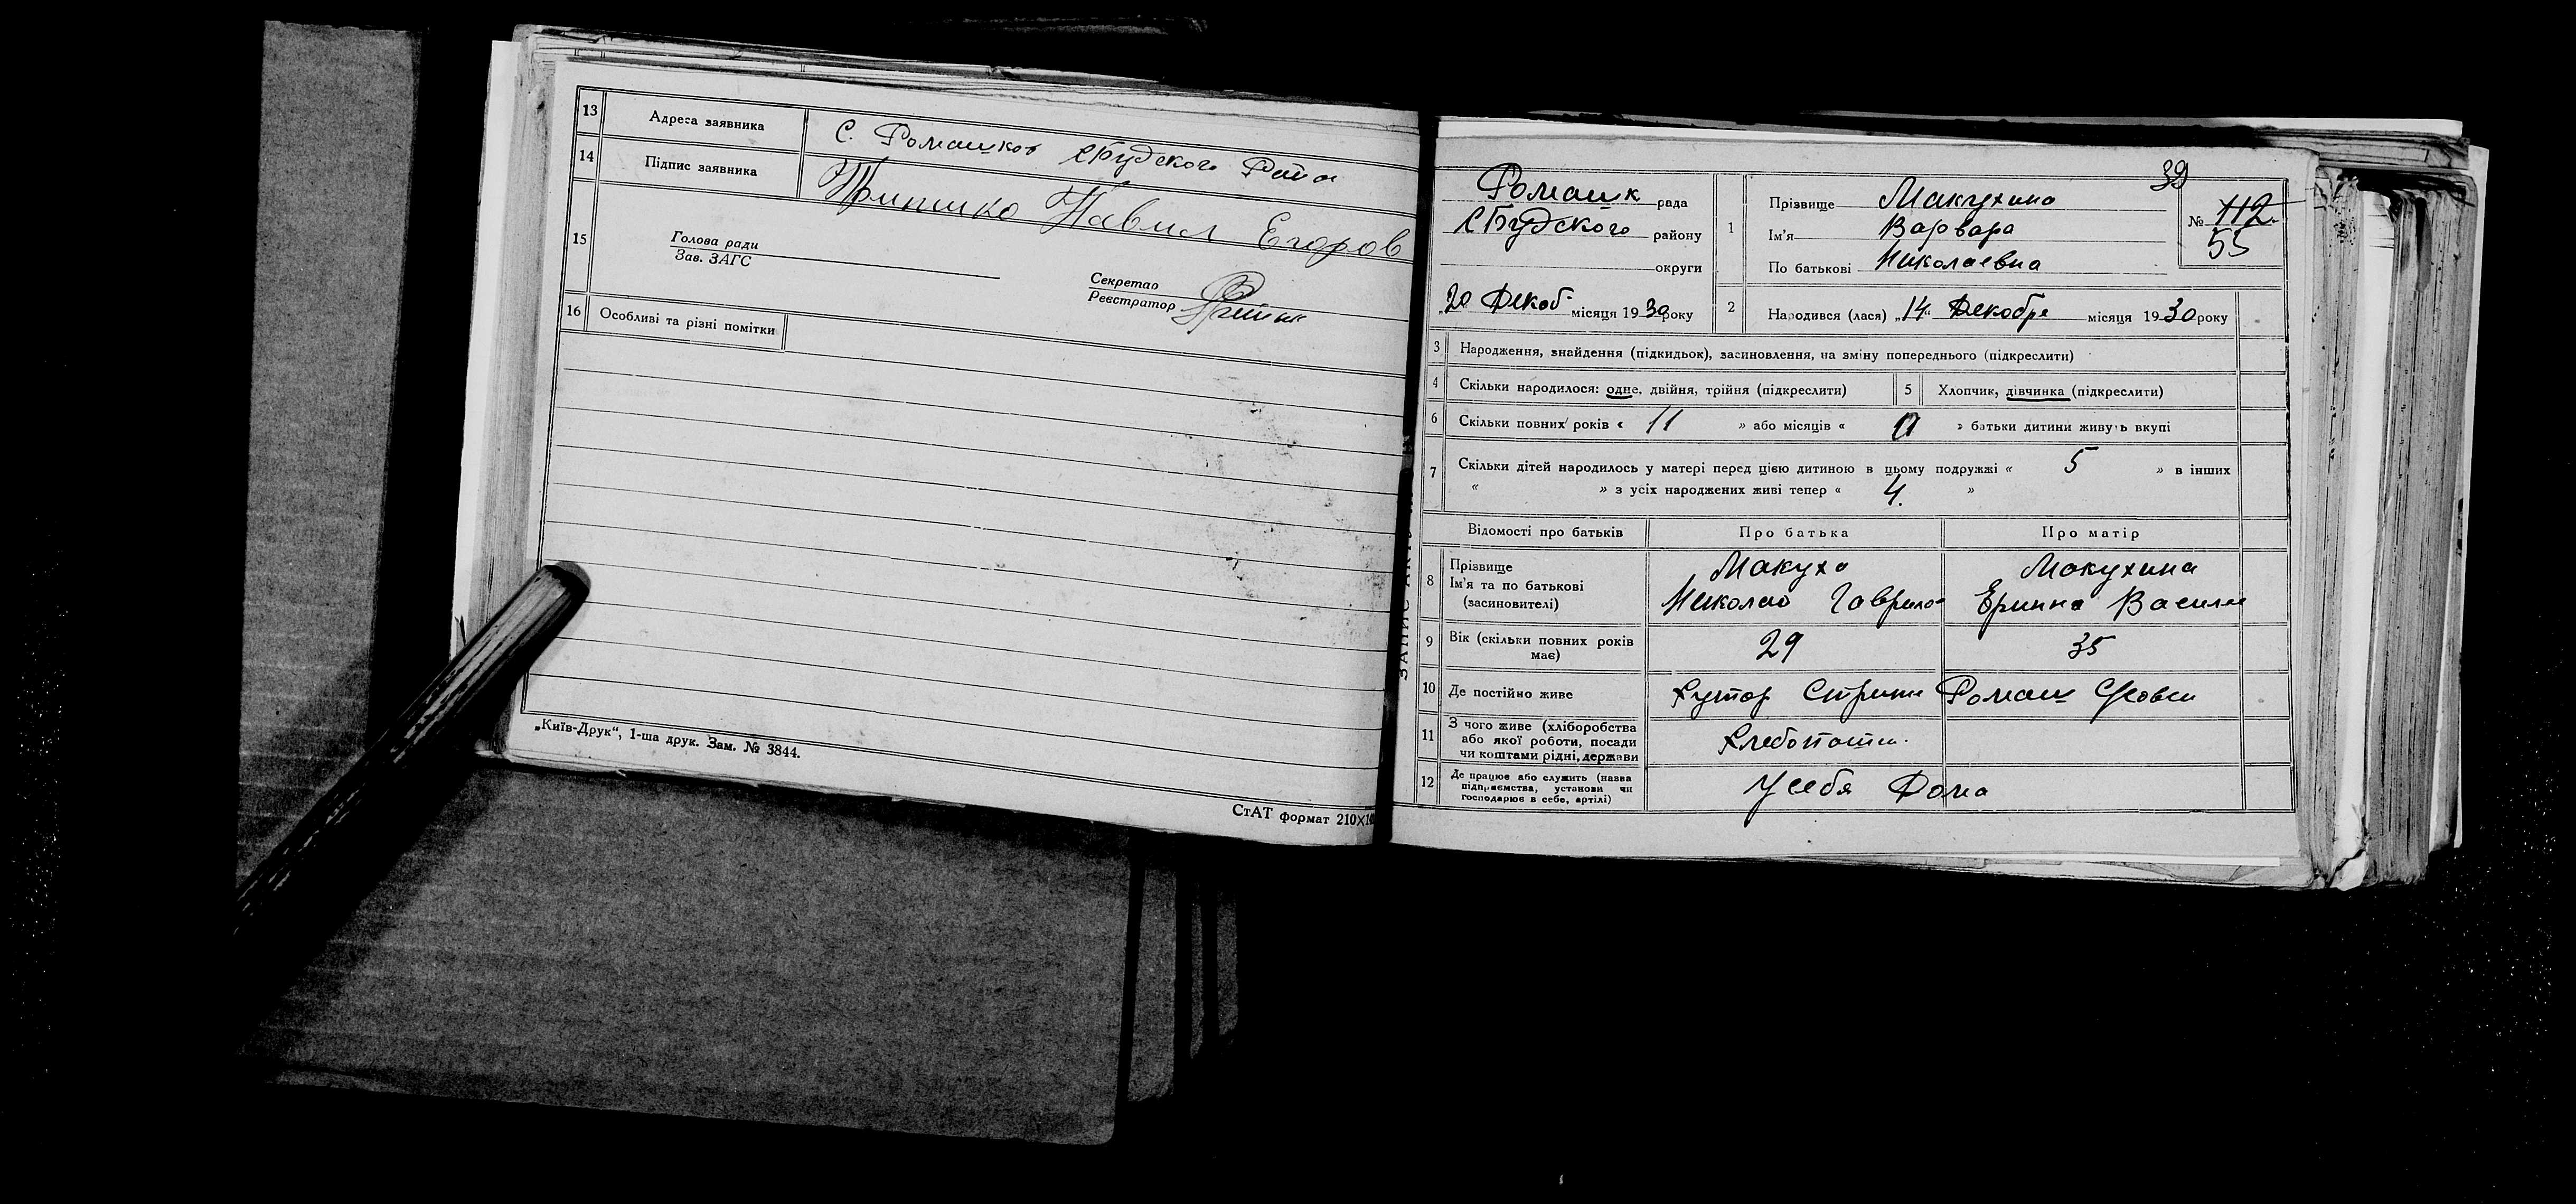 13 Адреса заявника С. Ромашков СБудского Район
14 Підпис заявника Павил Егоров
15 Голова ради
Зав. ЗАГС
Секретар
Реєстратор
16 Особливі та різні помітки
„Київ-Друк“, 1-ша друк. Зам. № 3844.
СтАТ формат 210X14
39
Ромашк рада
СБудского району
округи
„20 Декоб місяця 1930 року
1 Прізвище Макухина
Ім'я Варвара
По батькові Николаевна
№ 112.
55
2 Народився (лася) „14“ Декобре місяця 1930 року
3 Народження, знайдення (підкидьок), засиновлення, на зміну попереднього (підкреслити)
4 Скільки народилося: одне, двійня, трійня (підкреслити)
5 Хлопчик, дівчинка (підкреслити)
6 Скільки повних років « 11 » або місяців « 0 » батьки дитини живуть вкупі
7 Скільки дітей народилось у матері перед цією дитиною в цьому подружжі « 5 » в інших
« » з усіх народжених живі тепер « 4. »
Відомості про батьків Про батька Про матір
8 Прізвище
Ім'я та по батькові
(засиновителі)
Макуха
Николай Гаврило
Макухина
Ерина Василе
9 Вік (скільки повних років
має)
29 35
10 Де постійно живе Хутор Ромаш
11 З чого живе (хліборобства
або якої роботи, посади
чи коштами рідні, держави
Хлебопаши.
12 Де працює або служить (назва
підприємства, установи чи
господарює в себе, артілі)
Усебя Дома